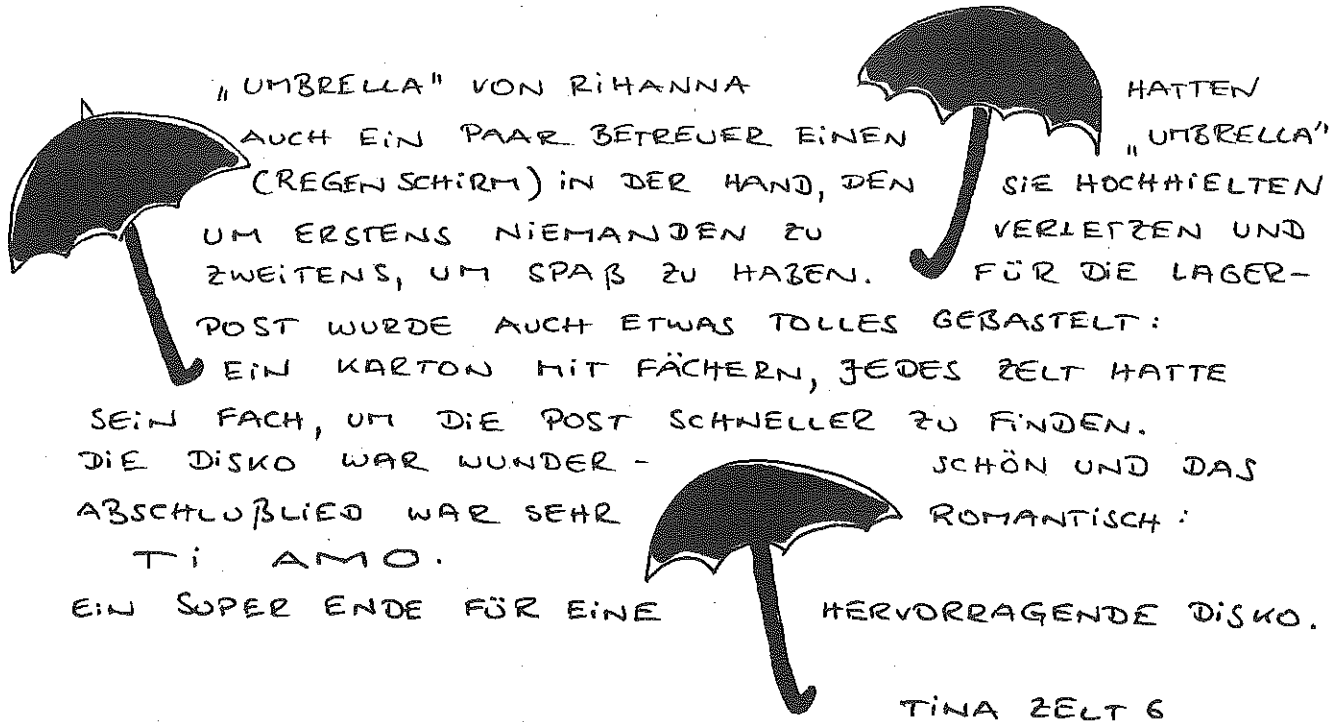 „UMBRELLA" VON RiHANNA HATTEN
AUCH EiN PAAR BETREUER EiNEN „UMBRELLA"
(REGENSCHiRM) iN DER HAND, DEN SiE HOCHHiELTEN
UM ERSTENS NiEMANDEN ZU VERLETZEN UND
ZWEiTENS, UM SPAß ZU HABEN. FÜR DiE LAGER-
POST WURDE AUCH ETWAS TOLLES GEBASTELT:
EiN KARTON MiT FÄCHERN, JEDES ZELT HATTE
SEiN FACH, UM DiE POST SCHNELLER ZU FiNDEN.
DiE DiSKO WAR WUNDER- SCHÖN UND DAS
ABSCHLUßLiED WAR SEHR ROMANTiSCH:
Ti AMO.
EiN SUPER ENDE FÜR EiNE HERVORRAGENDE DiSKO.
TiNA ZELT 6